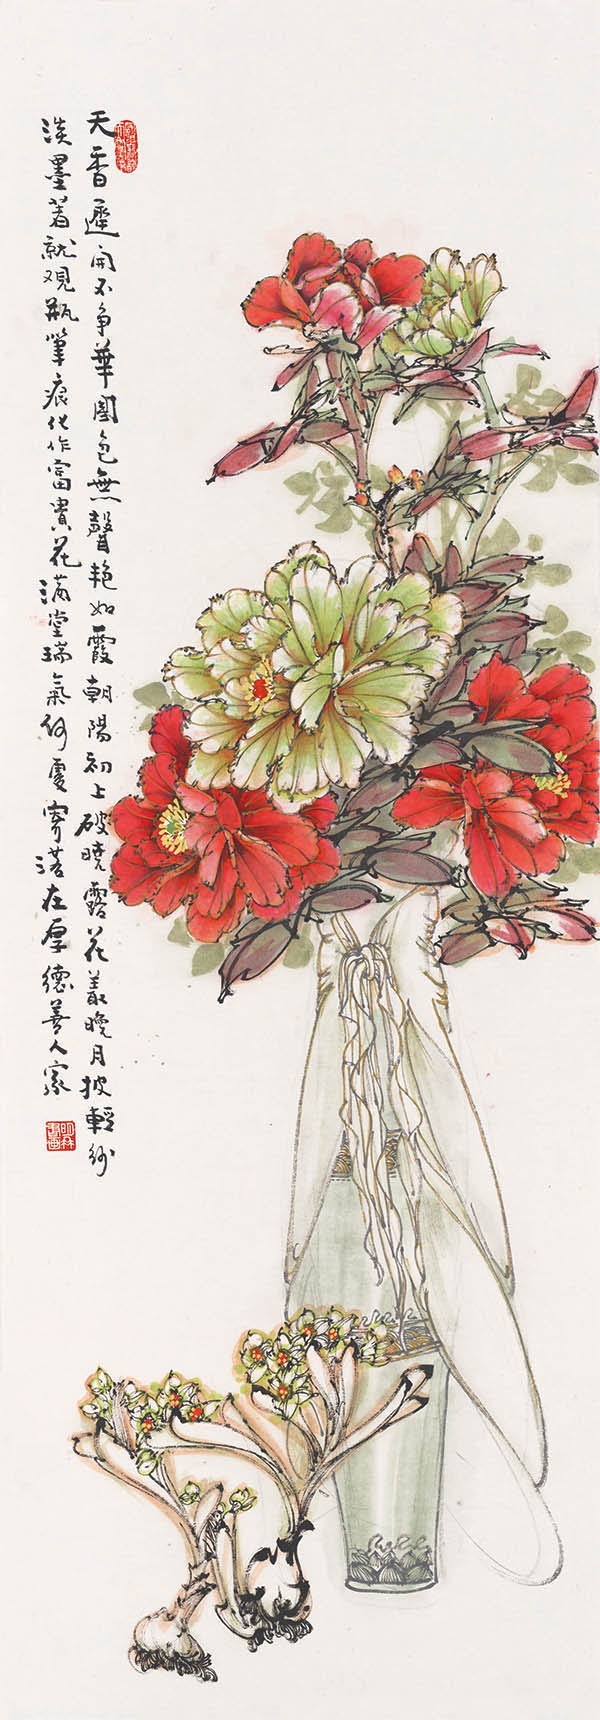 天香遲開不争華國色無聲艳如霞朝陽初上破曉露花叢曉月披輕紗
淡墨着就观瓶筆痕化作富貴花滿堂瑞氣何處寄落在厚德善人家